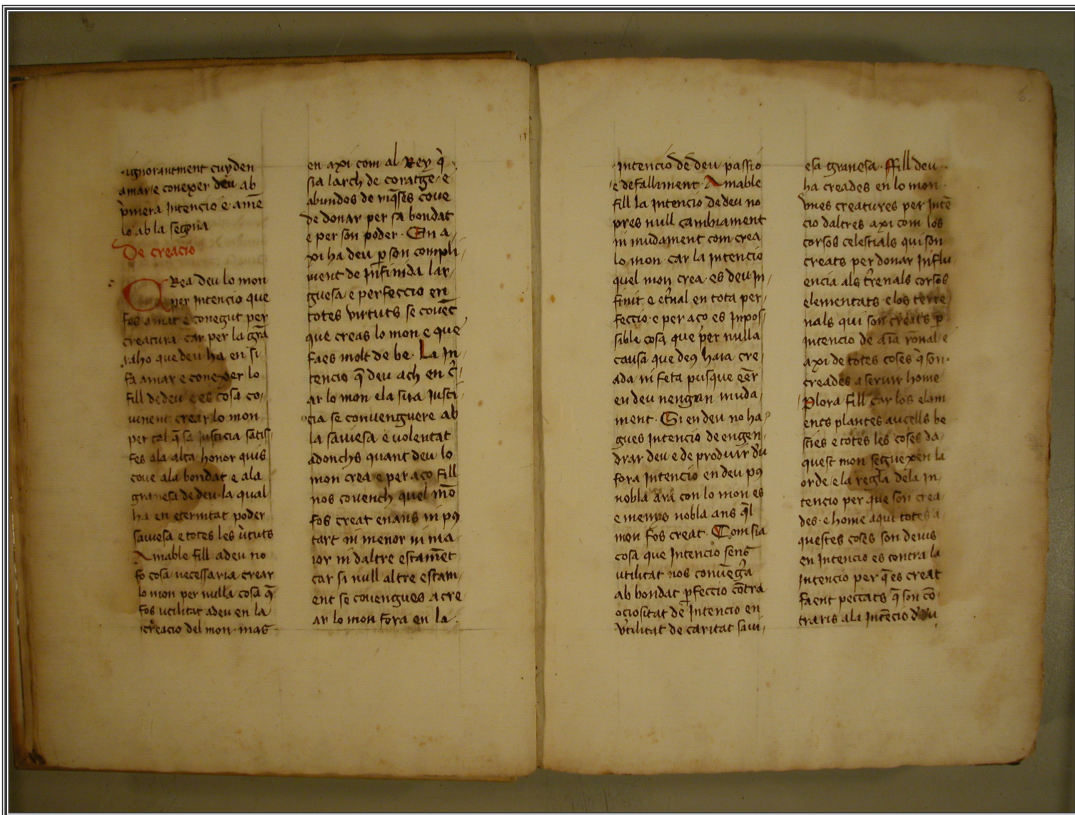 ignorantment cuyden
amar e conexer deu ab
p̄mera Intencio e amē
lo ab la segona
De creacio
CRea deu lo mon
per Intencio que
fos amat e conegut per
creatura car per la grā
raho que deu ha en si
fa amar e conexer lo
fill de deu e es cosa co
uinent crear lo mon
per tal q̄ sa Justicia satis
fes ala alta honor quis
coue ala bondat e ala
granesa de deu la qual
ha en eternitat poder
sauiesa e totes les v̄tuts
Amable fill a deu no
fo cosa necessaria crear
lo mon per nulla cosa q̄
fos utilitat a deu en la
creacio del mon mas
en axi com al Rey q̄
sia larch de coratge e
abundos de riq̄ses coue
de donar per sa bondat
e per son poder. En a
xi ha deu p̄ son compli
ment de Infinida lar
guesa e perfeccio en
totes virtuts se couēc
que creas lo mon e que
faes molt de be. La In
tencio q̄ deu ach en c̄
ar lo mon e la sua Justi
cia se conuenguere ab
la sauiesa e volentat
adonchs quant deu lo
mon crea e per aço fill
nos couench quel mō
fos creat enans ni pus
tart ni menor ni ma
ior ni daltre estamēt
car si null altre estam
ent se couengues a cre
ar lo mon fora en la
intencio de deu passio
e defalliment Amable
fill la Intencio de deu no
pres null cambiament
ni mudament com crea
lo mon car la intencio
quel mon crea es deu in
finit e et̄nal en tota per
feccio e per aço es Inpos
sible cosa que per nulla
causa que deus haia cre
ada ni feta pusque eēr
en deu negun muda
ment. Si en deu no ha
gues intencio de engen
drar deu e de produir deu
fora Intencio en deu pus
nobla Ara con lo mon es
e menys nobla ans q̄l
mon fos creat. Com sia
cosa que Intencio sens
utilitat nos conuēga
ab bondat p̄feccio cōtra
ociositat de Intencio en
vtilitat de caritat saui
esa granesa. Fill deu
ha creades en lo mon
vnes creatures per Intē
cio daltres axi com los
corsos celestials qui son
creats per donar Influ
encia als t̄renals corsos
elementats e los terre
nals qui son creats p̄
intencio de aīa rōnal e
axi de totes coses q̄ son
creades a seruir home
Plora fill car los elam
ents plantes aucells be
sties e totes les coses da
quest mon seguexen la
orde e la regla dela In
tencio per que son crea
des e home aqui totes a
questes coses son deius
en Intencio es contra la
Intencio per q̄ es creat
faent peccats q̄ son cō
traris ala Intēcio de deu